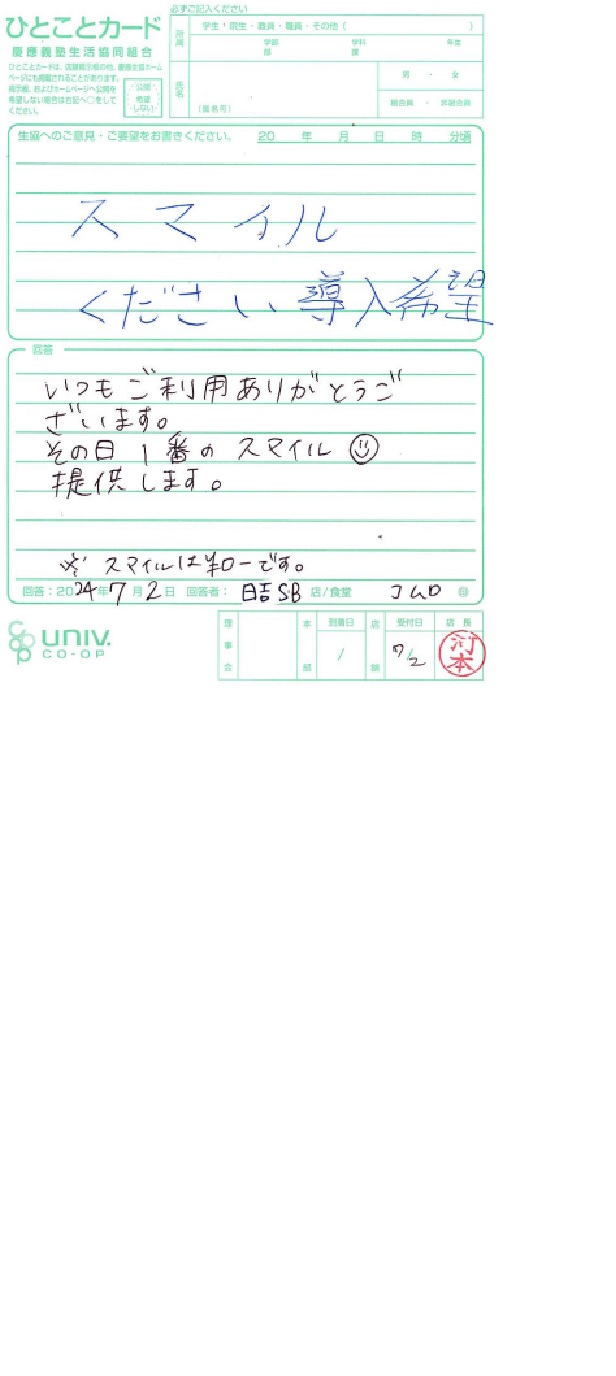 必ずご記入ください
ひとことカード
慶應義塾生活協同組合
ひとことカードは、店舗掲示板の他、慶應生協ホーム
ページにも掲載されることがあります。
掲示板、およびホームページへ公開を
希望しない場合は右記へ○をして
ください。
公開
希望
しない
所属
学生・院生・教員・職員・その他（　　）
学部　学科　年生
部　課
氏名
（匿名可）
男・女
組合員・非組合員
生協へのご意見・ご要望をお書きください。　20　年　月　日　時　分頃
スマイル
ください導入希望
回答
いつもご利用ありがとうご
ざいます。
その日1番のスマイル
提供します。
※スマイルは¥0ーです。
回答：2024年7月2日　回答者：日吉SB　店/食堂　印
UNIV.
CO-OP
理事会
本部
到着日
/
店舗
受付日
7/2
店長
河本